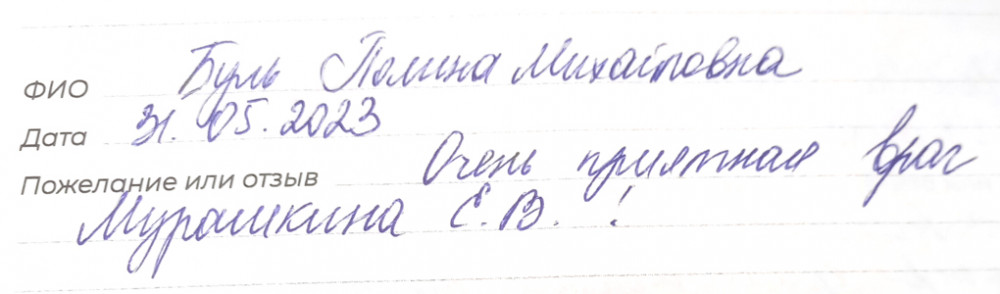 ФИО Буль Полина Михайловна
Дата 31.05.2023
Пожелание или отзыв Очень приятная врач
Мурашкина Е.В. !